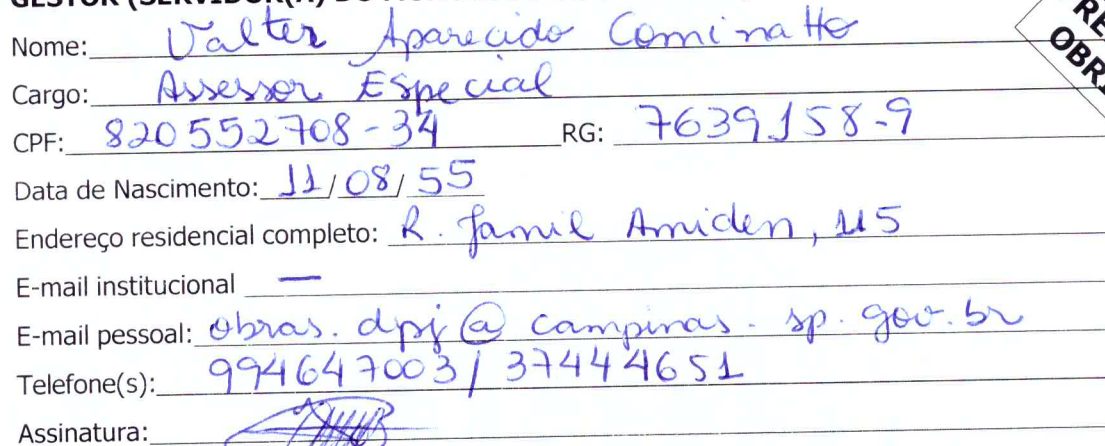 GESTOR (SERVIDOR(A) DO
Nome: Valter Aparecido Cominatto
Cargo: Assessor Especial
CPF: 820552708-34 RG: 7639158-9
Data de Nascimento: 11/08/55
Endereço residencial completo: R. Jamil Amiden, 115
E-mail institucional —
E-mail pessoal: obras.dpj@campinas.sp.gov.br
Telefone(s): 994647003 / 37444651
Assinatura: